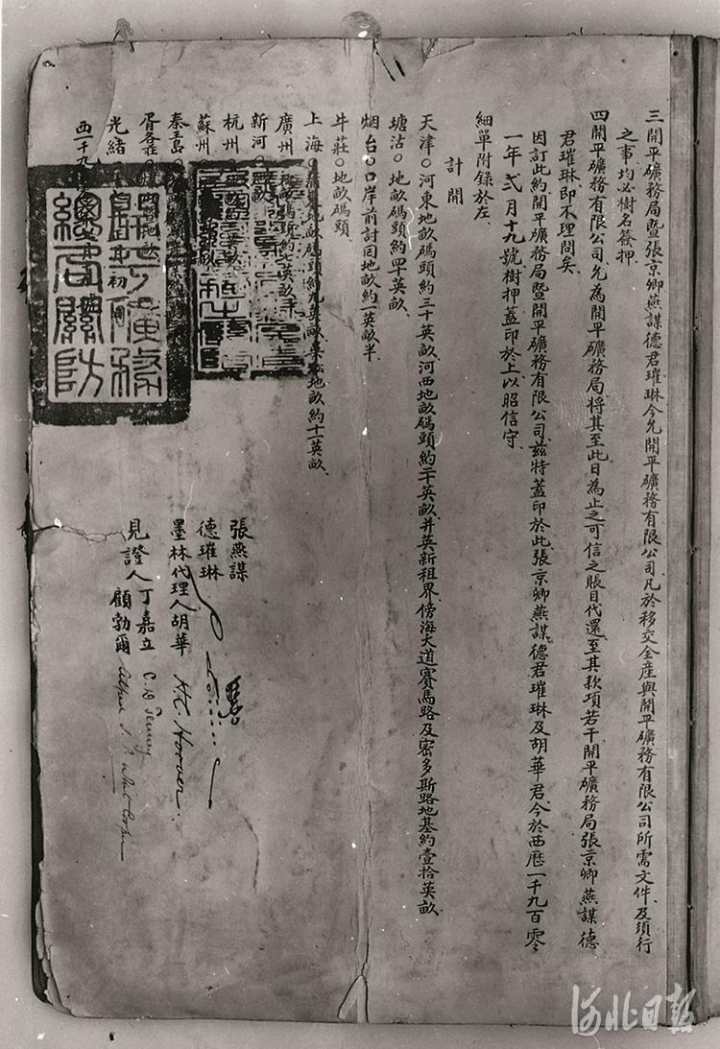 三開平礦務局暨張京卿燕謀德君璀琳今允開平礦務有限公司凡於移交全產與開平礦務有限公司所需文件及須行
之事均必樹名簽押
四開平礦務有限公司允為開平礦務局將其至此日為止之可信之賬目代還至其款項若干開平礦務局張京卿燕謀德
君璀琳即不理問矣
因訂此約開平礦務局暨開平礦務有限公司茲特蓋印於此張京卿燕謀德君璀琳及胡華君今於西歷一千九百零
一年貳月十九號樹押蓋印於上以照信守
細單附錄於左
計開
天津○河東地畝碼頭約三十英畝河西地畝碼頭約二十英畝并英新租界傍海大道賽馬路及密多斯路地基約壹拾英畝
塘沽○地畝碼頭約四十英畝
烟台○口岸前討回地畝約一英畝半
牛莊○地畝碼頭
上海○地畝碼頭約九英畝地畝約十一英畝
廣州○英畝
新河○
杭州○
蘇州○
秦皇島○
胥各莊○
光緒
西一千九
開平礦務總局關防
張燕謀
德璀琳
墨林代理人胡華 H.C. Hoover
見證人丁嘉立 C. D. Tenney
顧勃爾
河北日报